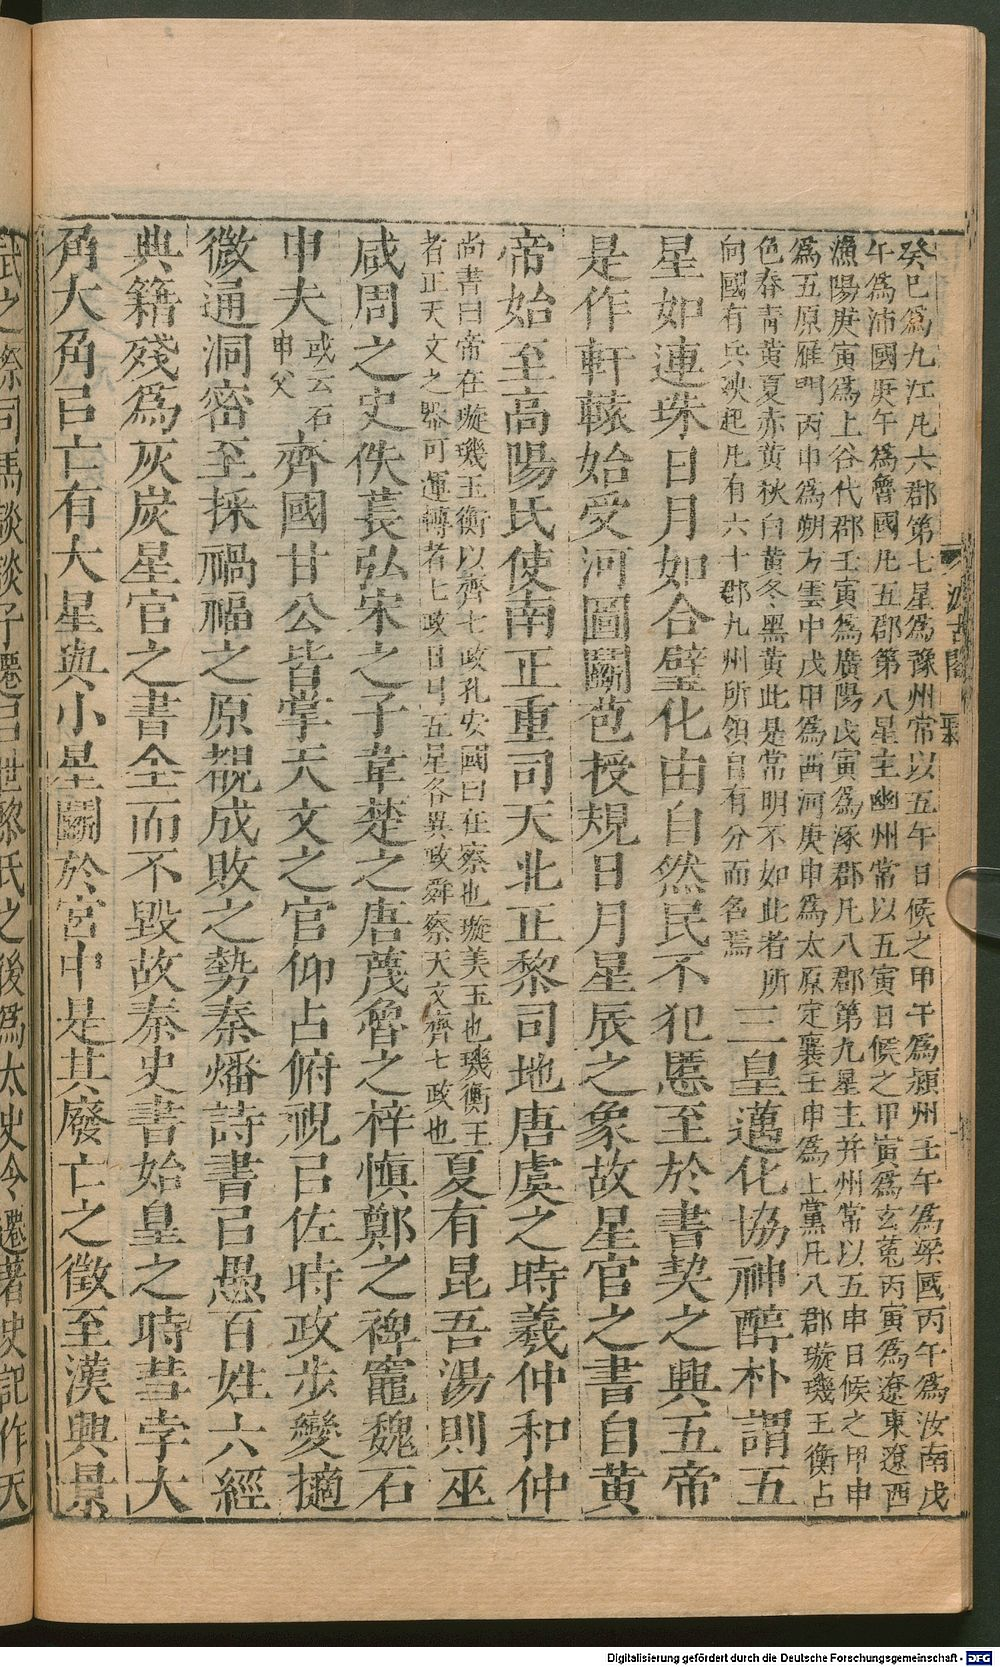 癸巳爲九江凡六郡第七星爲豫州常以五午日候之甲午爲潁州壬午爲梁國丙午爲汝南戊
午爲沛國庚午爲魯國凡五郡第八星主幽州常以五寅日候之甲寅爲玄菟丙寅爲遼東遼西
漁陽庚寅爲上谷代郡壬寅爲廣陽戊寅爲涿郡凡八郡第九星主并州常以五申日候之甲申
爲五原鴈門丙申爲朔方雲中戊申爲西河庚申爲太原定襄壬申爲上黨凡八郡璇璣玉衡占
色春青黃夏赤黃秋白黃冬黑黃此是常明不如此者所
向國有兵殃起凡有六十郡九州所領自有分而名焉
三皇邁化協神醇朴謂五
星如連珠日月如合璧化由自然民不犯慝至於書契之興五帝
是作軒轅始受河圖鬭苞授規日月星辰之象故星官之書自黃
帝始至高陽氏使南正重司天北正黎司地唐虞之時羲仲和仲
尚書曰帝在璇璣玉衡以齊七政孔安國曰在察也璇美玉也璣衡王
者正天文之器可運轉者七政日月五星各異政舜察天文齊七政也
夏有昆吾湯則巫
咸周之史佚萇弘宋之子韋楚之唐蔑魯之梓愼鄭之裨竈魏石
申夫
或云石
申父
齊國甘公皆掌天文之官仰占俯視㠯佐時政步變擿
微通洞密至採禍福之原覩成敗之勢秦燔詩書㠯愚百姓六經
典籍殘爲灰炭星官之書全而不毀故秦史書始皇之時彗孛大
角大角㠯亡有大星與小星鬭於宮中是其廢亡之徵至漢興景
武之際司馬談談子遷㠯世黎氏之後爲太史令遷著史記作天
汲古閣
Digitalisierung gefördert durch die Deutsche Forschungsgemeinschaft - DFG